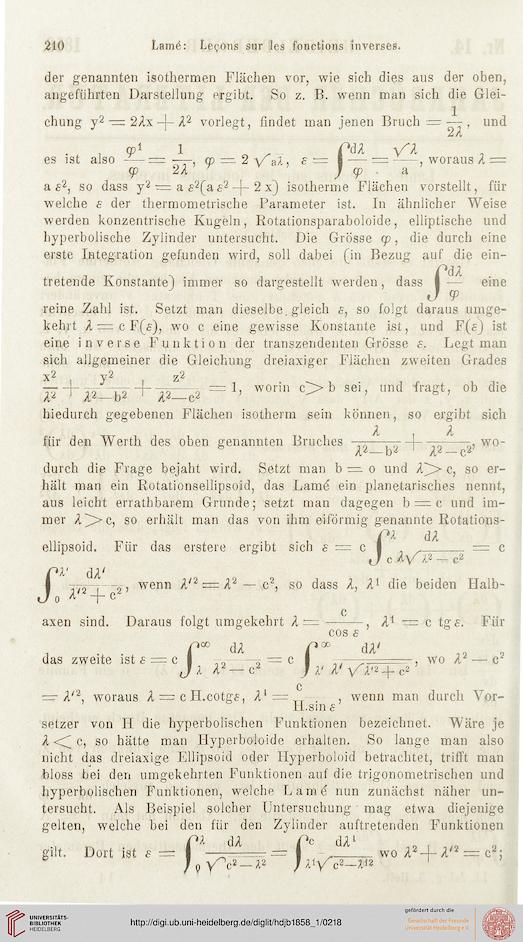 210 Lamé: Leçons sur les fonctions inverses.
der genannten isothermen Flächen vor, wie sich dies aus der oben,
angeführten Darstellung ergibt. So z. B. wenn man sich die Glei-
chung y² = 2λx + λ² vorlegt, findet man jenen Bruch = 1/2λ, und
es ist also φ¹/φ = 1/2λ, φ = 2 √aλ, ε = ∫dλ/φ = √λ/a, woraus λ =
a ε², so dass y² = a ε²(a ε² + 2 x) isotherme Flächen vorstellt, für
welche ε der thermometrische Parameter ist. In ähnlicher Weise
werden konzentrische Kugeln, Rotationsparaboloide, elliptische und
hyperbolische Zylinder untersucht. Die Grösse φ, die durch eine
erste Integration gefunden wird, soll dabei (in Bezug auf die ein-
tretende Konstante) immer so dargestellt werden, dass ∫dλ/φ eine
reine Zahl ist. Setzt man dieselbe gleich ε, so folgt daraus umge-
kehrt λ = c F(ε), wo c eine gewisse Konstante ist, und F(ε) ist
eine inverse Funktion der transzendenten Grösse ε. Legt man
sich allgemeiner die Gleichung dreiaxiger Flächen zweiten Grades
x²/λ² + y²/λ²—b² + z²/λ²—c² = 1, worin c > b sei, und fragt, ob die
hiedurch gegebenen Flächen isotherm sein können, so ergibt sich
für den Werth des oben genannten Bruches λ/λ²—b² + λ/λ²—c², wo-
durch die Frage bejaht wird. Setzt man b = o und λ > c, so er-
hält man ein Rotationsellipsoid, das Lamé ein planetarisches nennt,
aus leicht errathbarem Grunde; setzt man dagegen b = c und im-
mer λ > c, so erhält man das von ihm eiförmig genannte Rotations-
ellipsoid. Für das erstere ergibt sich ε = c ∫_c^λ dλ/λ√λ² — c² = c
∫_0^λ' dλ'/λ'² + c², wenn λ'² = λ² — c², so dass λ, λ¹ die beiden Halb-
axen sind. Daraus folgt umgekehrt λ = c/cos ε, λ¹ = c tg ε. Für
das zweite ist ε = c ∫_λ^∞ dλ/λ²—c² = c ∫_λ'^∞ dλ'/λ'√λ'² + c², wo λ² — c²
= λ'², woraus λ = c H.cotgε, λ¹ = c/H.sin ε, wenn man durch Vor-
setzer von H die hyperbolischen Funktionen bezeichnet. Wäre je
λ < c, so hätte man Hyperboloide erhalten. So lange man also
nicht das dreiaxige Ellipsoid oder Hyperboloid betrachtet, trifft man
bloss bei den umgekehrten Funktionen auf die trigonometrischen und
hyperbolischen Funktionen, welche Lamé nun zunächst näher un-
tersucht. Als Beispiel solcher Untersuchung mag etwa diejenige
gelten, welche bei den für den Zylinder auftretenden Funktionen
gilt. Dort ist ε = ∫_0^λ dλ/√c²—λ² = ∫_λ¹^c dλ¹/√c²—λ¹² wo λ² + λ'² = c²;
UNIVERSITÄTS-
BIBLIOTHEK
HEIDELBERG
http://digi.ub.uni-heidelberg.de/diglit/hdjb1858_1/0218
gefördert durch die
Gesellschaft der Freunde
Universität Heidelberg e.V.